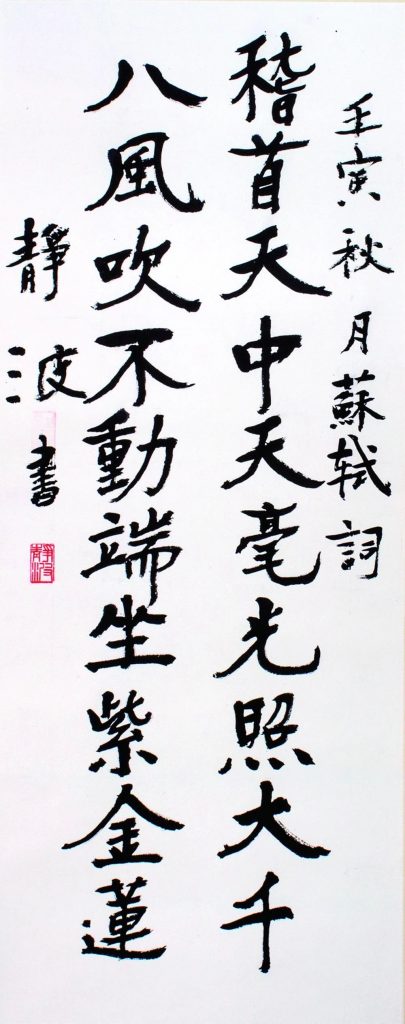 壬寅秋月蘇軾詞
稽首天中天毫光照大千
八風吹不動端坐紫金蓮
靜波書